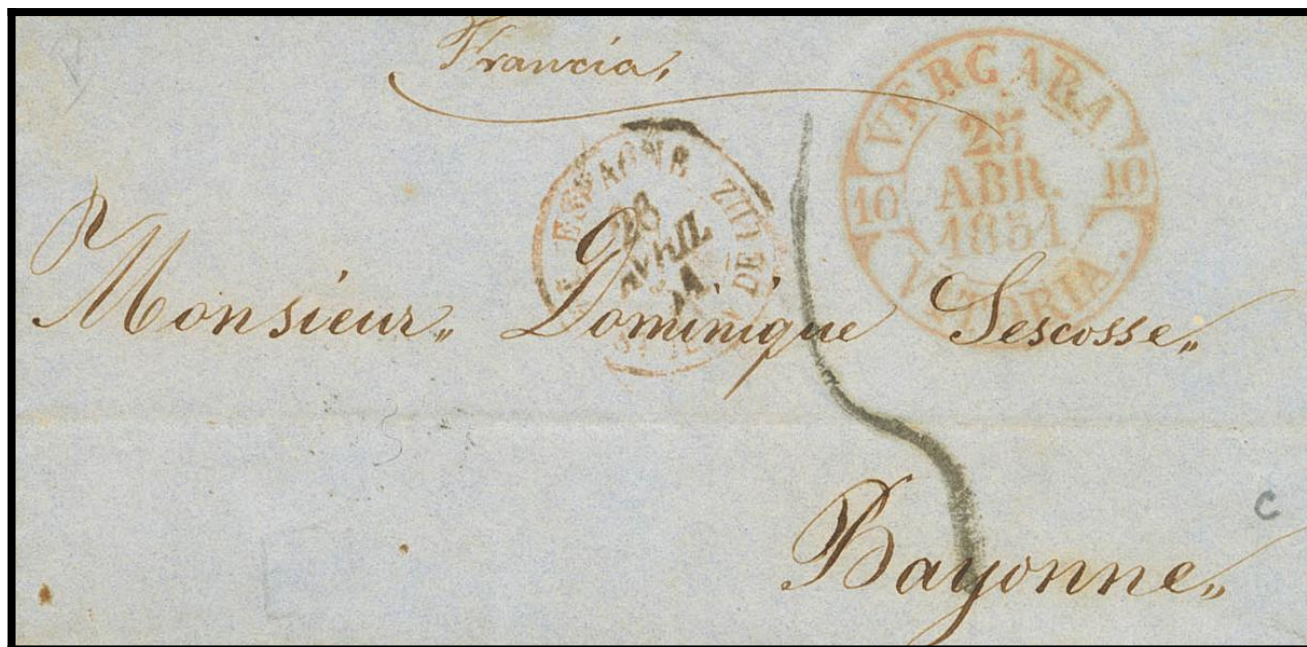 Francia,
VERGARA
25
ABR.
1851
10 10
VITORIA.
ESPAGNE
28
DE LUZ
Monsieur„ Dominique Lescosse„
5
Bayonne„
C